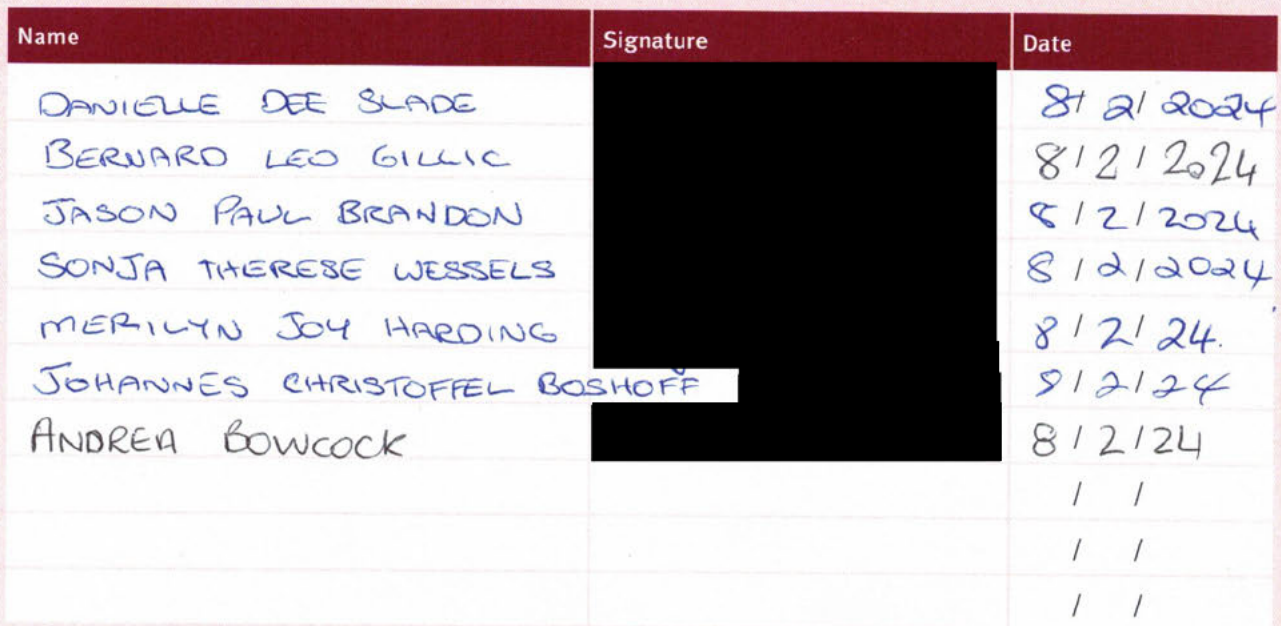 Name Signature Date
DANIELLE DEE SLADE 8/2/2024
BERNARD LEO GILLIC 8/2/2024
JASON PAUL BRANDON 8/2/2024
SONJA THERESE WESSELS 8/2/2024
MERILYN JOY HARDING 8/2/24.
JOHANNES CHRISTOFFEL BOSHOFF 8/2/24
ANDREA BOWCOCK 8/2/24
/ /
/ /
/ /